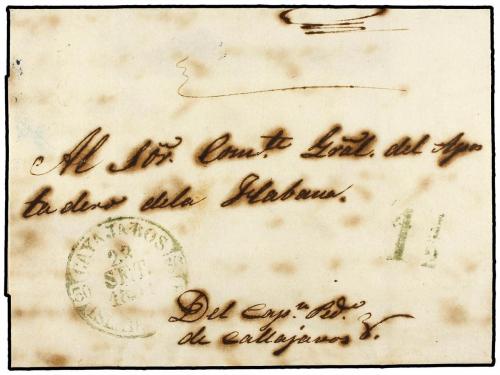 Al Sõr. Comte. Gral. del Apos
tadero dela Habana.
1½
CAYAJABOS
22
SET
Del Capn. Pedo.
de Callajavos